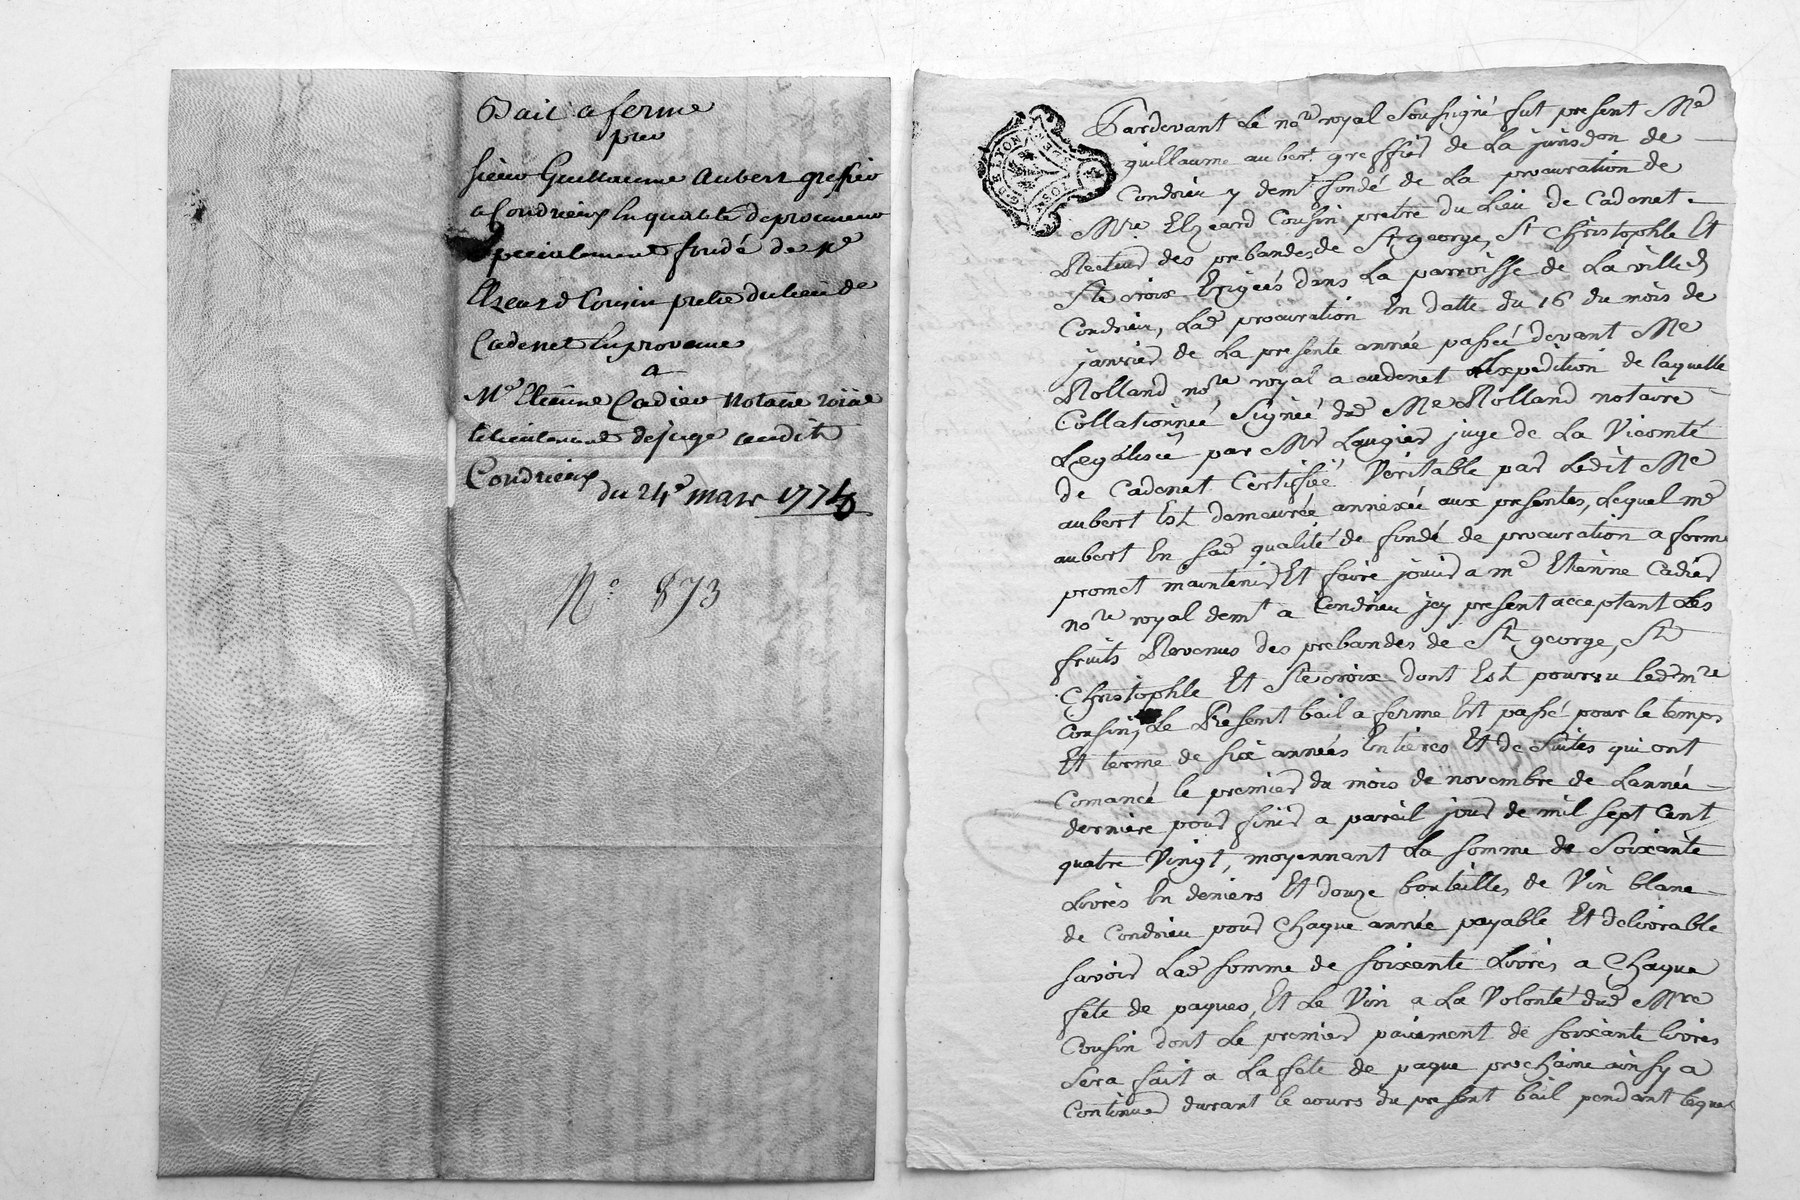 Bail a ferme
par
sieur Guillaume Aubert greffier
a Condrieux en qualité de procureur
specialement fondé de Me
Elzeard Cousin pretre du lieu de
Cadenet en provence
a
Me Etienne Cadier Notaire roial
lieutenant de juge audit
Condrieux
du 24e mars 1774
N.o 873
G. DE LYON
Pardevant Le nore royal soussigné fut present Me
guillaume aubert greffier de La jurisdon de
Condrieu y demt fondé de La procuration de
Mre Elzeard Cousin pretre du Lieu de Cadenet
Recteur des prebandes de St george, St Christophle Et
Ste croix Erigées dans La parroisse de La ville
Condrieu, Lade procuration En datte du 16 du mois de
janvier de La presente année passée devant Me
Rolland nore royal a cadenet Expedition de laquelle
Collationnée signée dud Me Rolland notaire
Legalisée par Mr Laugier juge de La Vicomté
de Cadenet Certifiée Veritable par Ledit Me
aubert Est demeurée annexée aux presentes, Lequel me
aubert En sad qualité de fondé de procuration a ferme
promet maintenir Et faire jouir a me Etienne Cadier
nore royal demt a Condrieu icy present acceptant Les
fruits Revenus des prebandes de St george, St
Christophle Et Ste croix dont Est pourvu led mre
Cousin, Le Present bail a ferme Est passé pour le temps
Et terme de six années Entieres Et de suites qui ont
Comancé le premier du mois de novembre de L'année
derniere pour finir a pareil jour de mil sept Cent
quatre Vingt, moyennant La somme de Soixante
Livres En deniers Et douze bouteilles de Vin blanc
de Condrieu pour Chaque année payable Et delivrable
savoir Lad somme de soixante Livres a Chaque
fete de paques, Et Le Vin a La Volonté dud Mre
Cousin dont Le premier paiement de soixante livres
sera fait a La fete de paque prochaine ainsy a
Continuer durant le cours du present bail pendant lequel